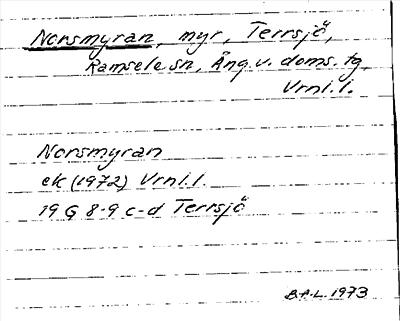 Norsmyran, myr, Terrsjö,
Ramsele sn, Ång. v. doms. tg.
Vrnl. l.
Norsmyran
ek (1972) Vrnl. l.
19 G 8-9 c-d Terrsjö
B.F.L. 1973